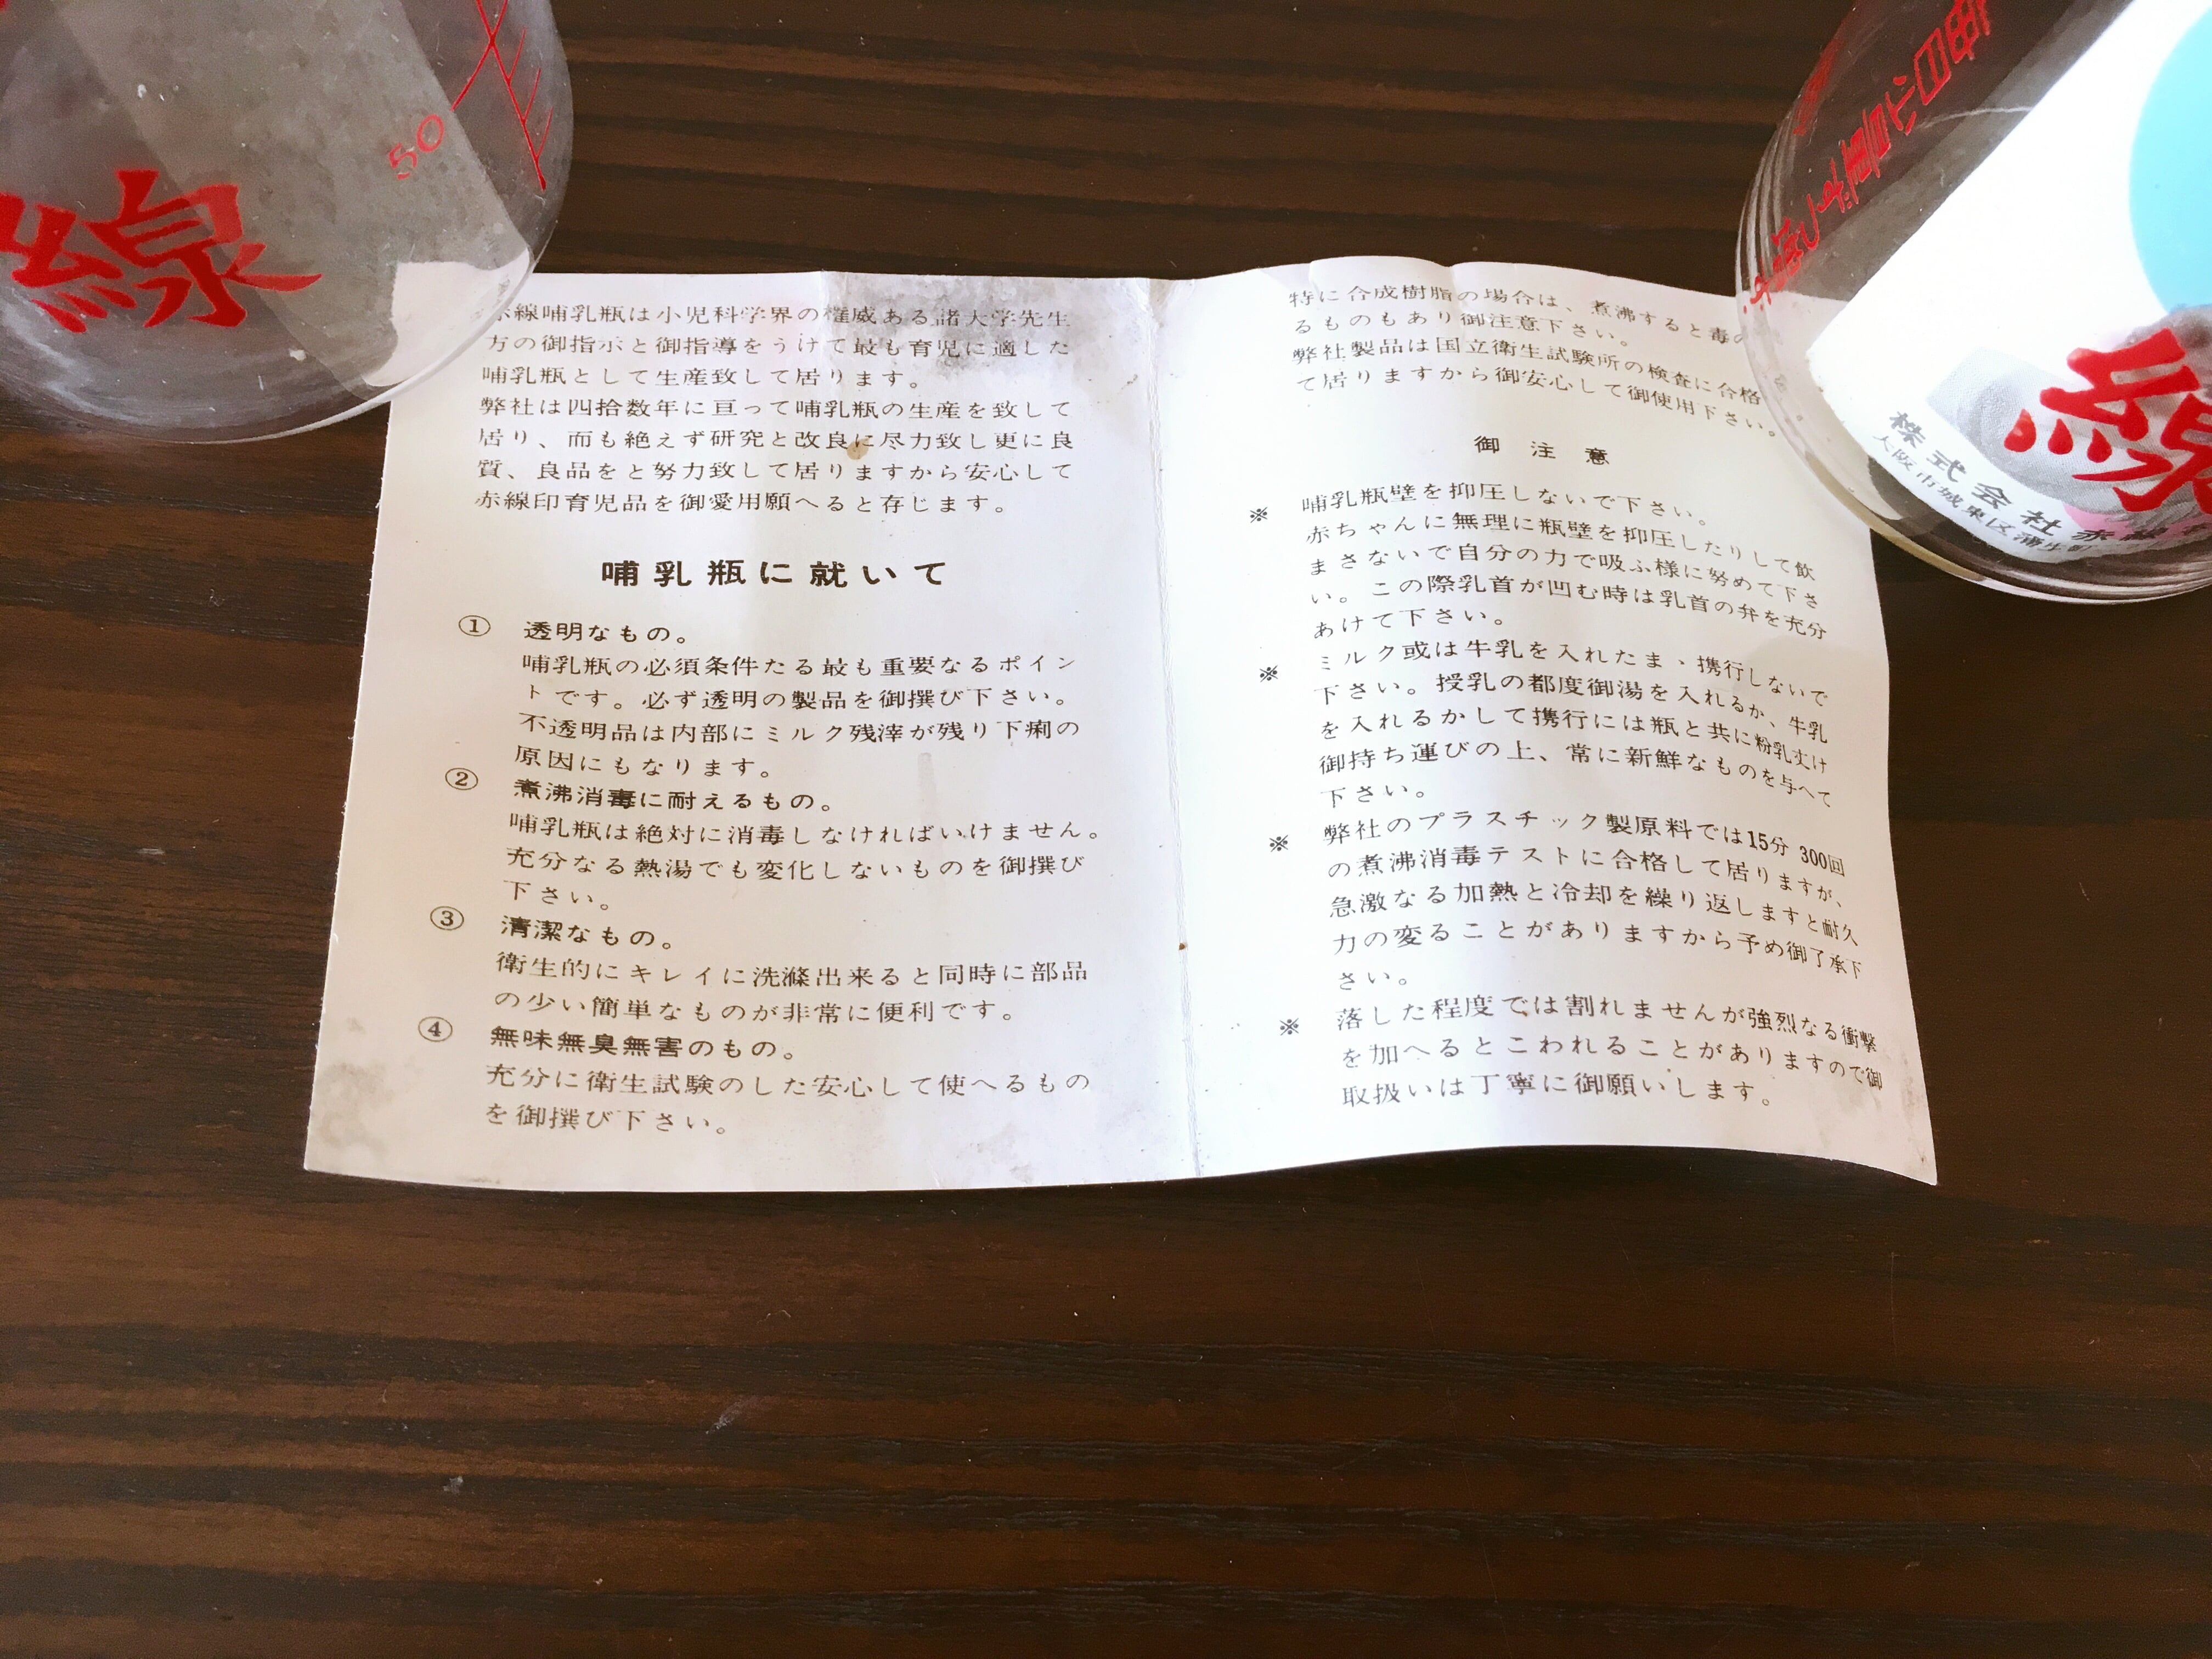 線
50
赤線哺乳瓶は小児科学界の権威ある諸大学先生
方の御指示と御指導をうけて最も育児に適した
哺乳瓶として生産致して居ります。
弊社は四拾数年に亘って哺乳瓶の生産を致して
居り、而も絶えず研究と改良に尽力致し更に良
質、良品をと努力致して居りますから安心して
赤線印育児品を御愛用願へると存じます。
哺乳瓶に就いて
① 透明なもの。
哺乳瓶の必須条件たる最も重要なるポイン
トです。必ず透明の製品を御撰び下さい。
不透明品は内部にミルク残滓が残り下痢の
原因にもなります。
② 煮沸消毒に耐えるもの。
哺乳瓶は絶対に消毒しなければいけません。
充分なる熱湯でも変化しないものを御撰び
下さい。
③ 清潔なもの。
衛生的にキレイに洗滌出来ると同時に部品
の少い簡単なものが非常に便利です。
④ 無味無臭無害のもの。
充分に衛生試験のした安心して使へるもの
を御撰び下さい。
特に合成樹脂の場合は、煮沸すると毒の
るものもあり御注意下さい。
弊社製品は国立衛生試験所の検査に合格
て居りますから御安心して御使用下さい。
御注意
※ 哺乳瓶壁を抑圧しないで下さい。
赤ちゃんに無理に瓶壁を抑圧したりして飲
まさないで自分の力で吸ふ様に努めて下さ
い。この際乳首が凹む時は乳首の弁を充分
あけて下さい。
※ ミルク或は牛乳を入れたまゝ携行しないで
下さい。授乳の都度御湯を入れるか、牛乳
を入れるかして携行には瓶と共に粉乳丈け
御持ち運びの上、常に新鮮なものを与へて
下さい。
※ 弊社のプラスチック製原料では15分 300回
の煮沸消毒テストに合格して居りますが、
急激なる加熱と冷却を繰り返しますと耐久
力の変ることがありますから予め御了承下
さい。
※ 落した程度では割れませんが強烈なる衝撃
を加へるとこわれることがありますので御
取扱いは丁寧に御願いします。
線
株式会社赤線
大阪市城東区蒲生町